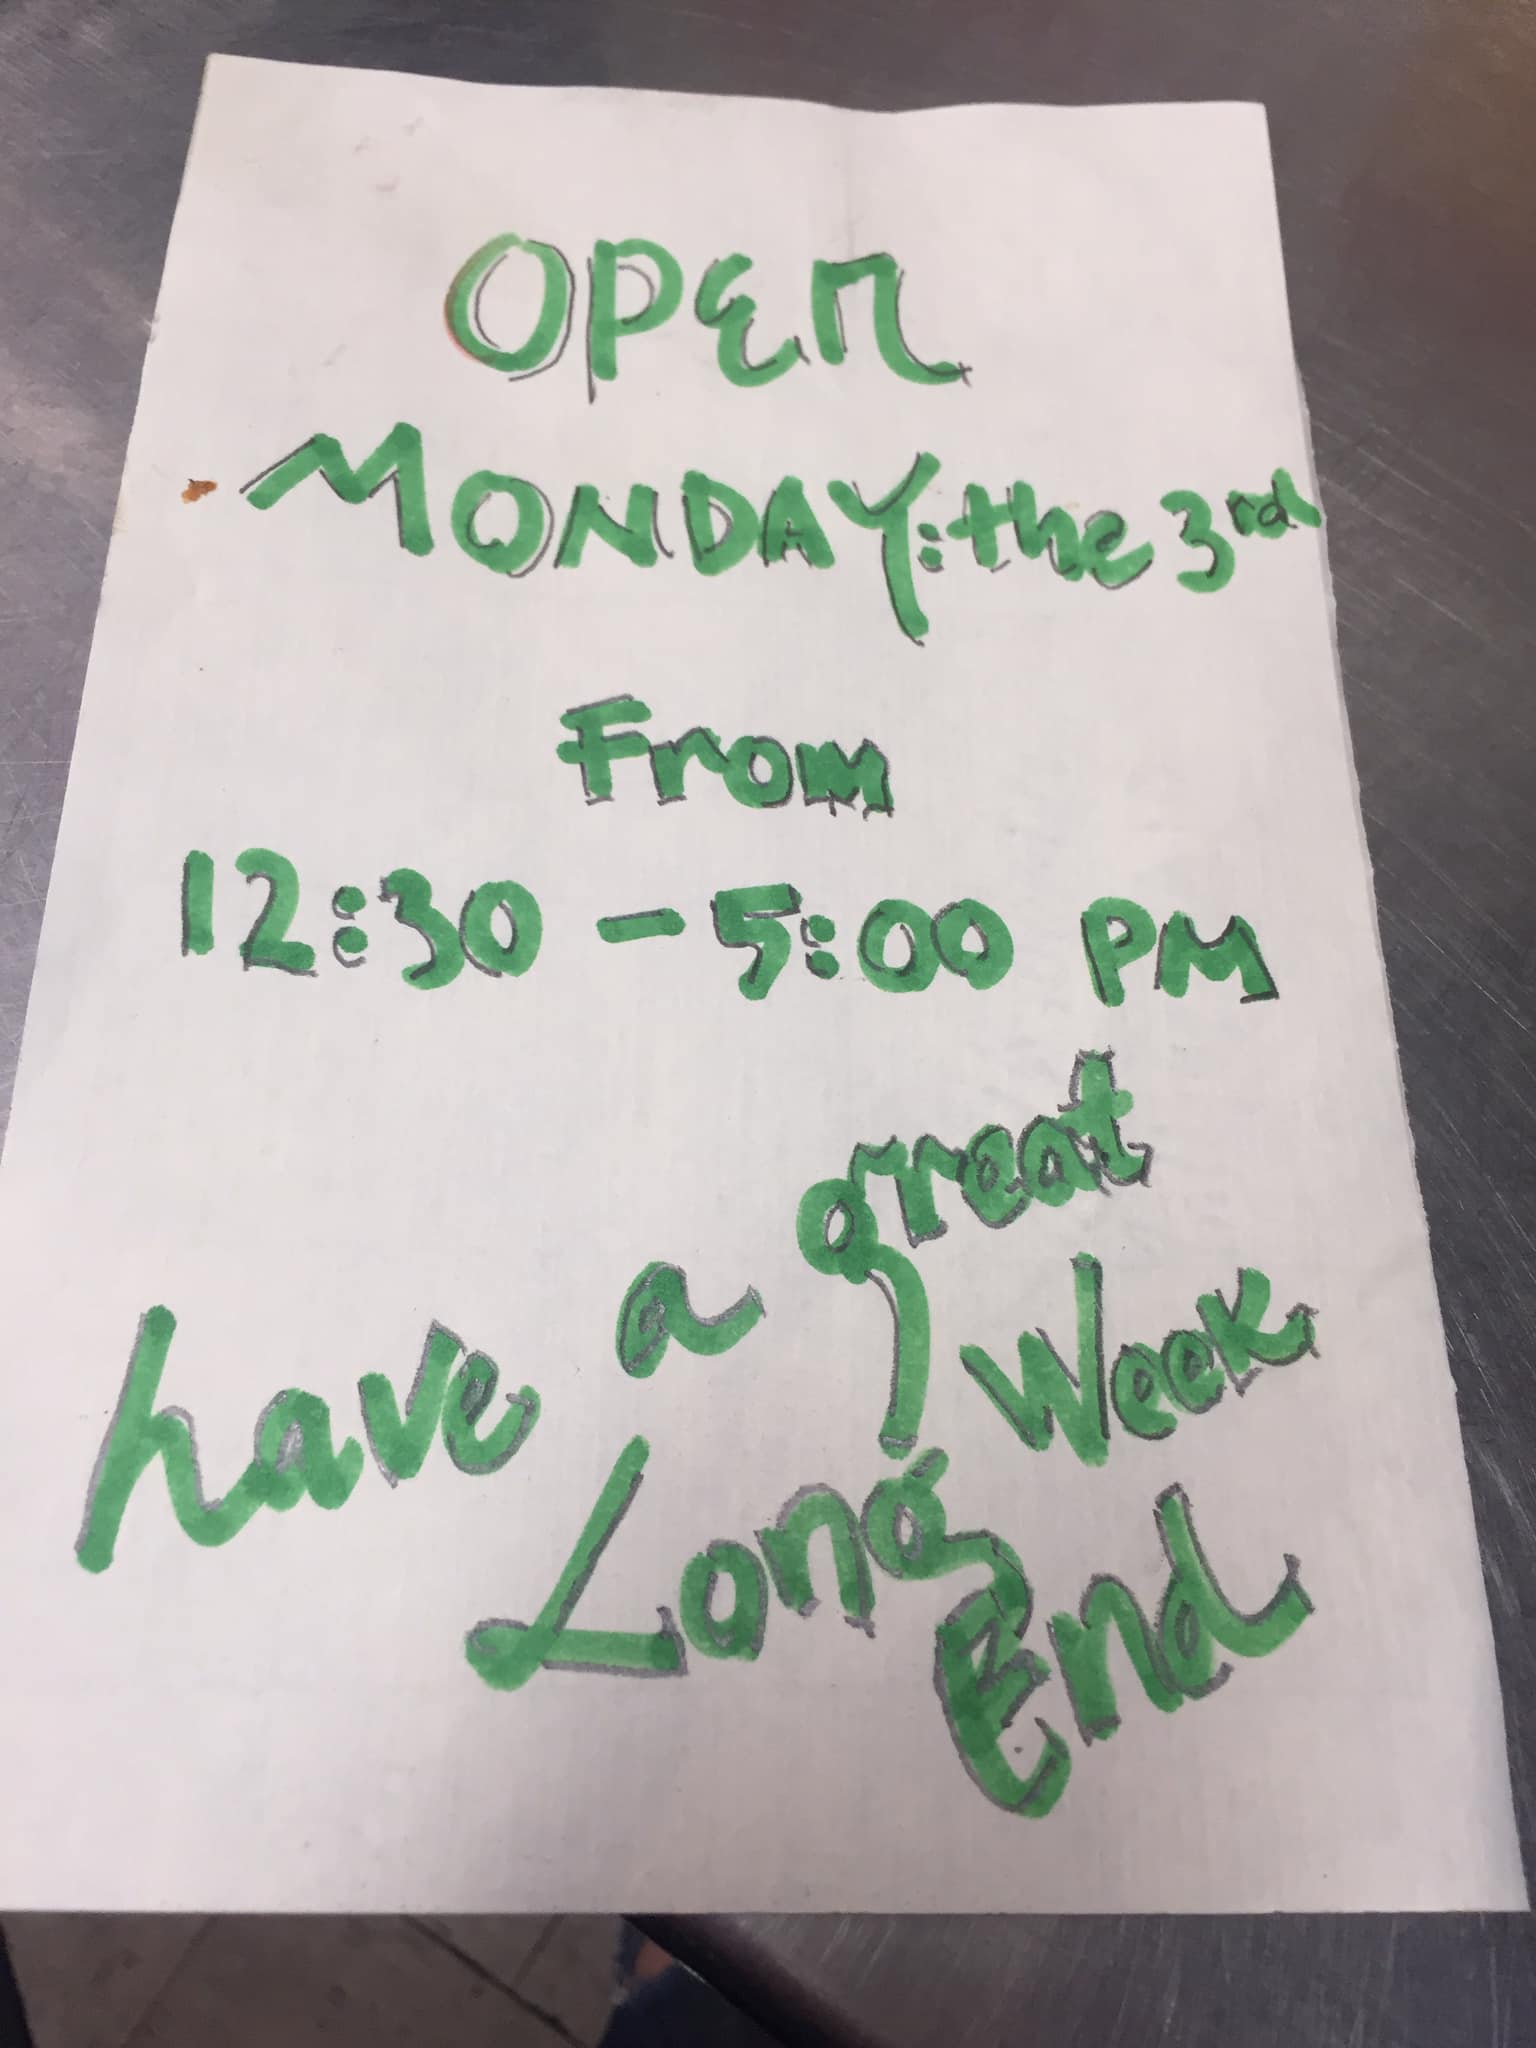 OPEn
MONDAY: the 3rd
From
12:30 - 5:00 PM
have a great
Long Week
End